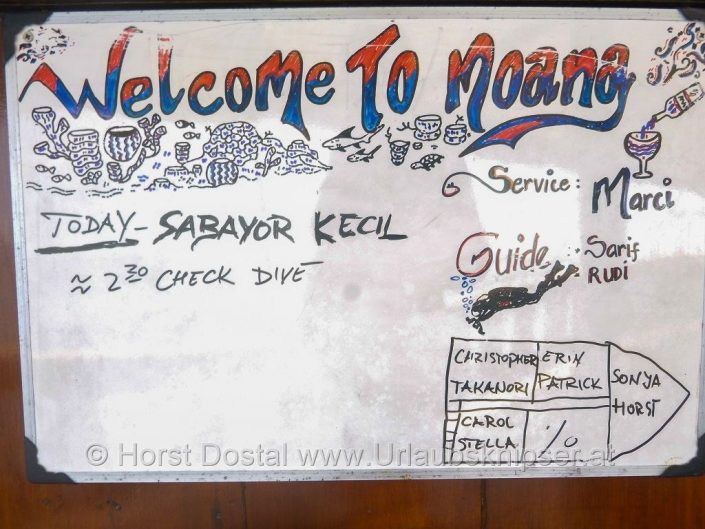 Welcome To Moana
Service: Marci
TODAY - SABAYOR KECIL
≈ 2³⁰ CHECK DIVE
Guide: Sarif
RUDI
CHRISTOPHER
TAKANORI
ERIN
PATRICK
SONYA
HORST
CAROL
STELLA
%
© Horst Dostal www.Urlaubsknipser.at